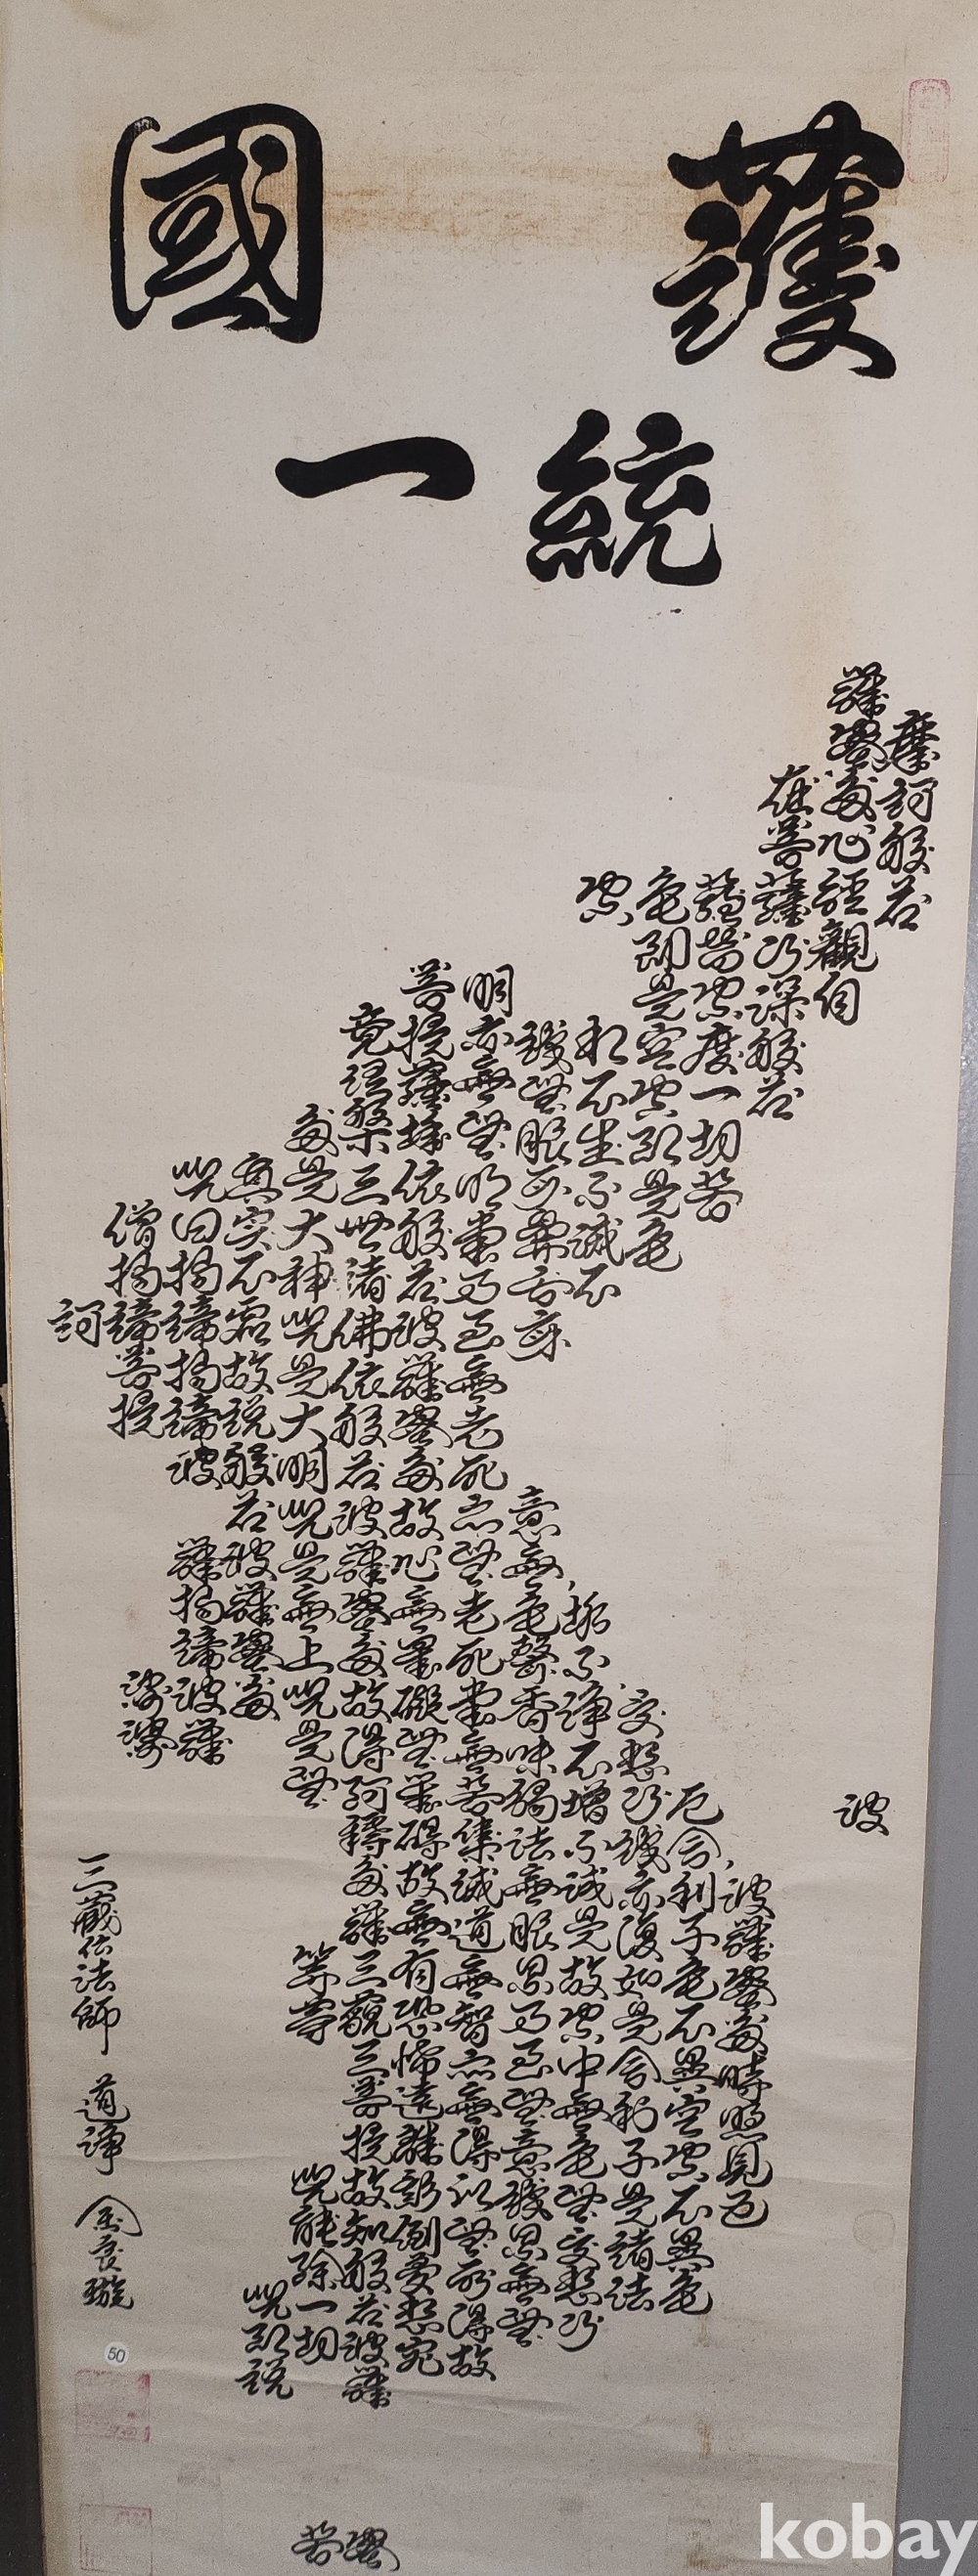 護國
統一
摩訶般若波
羅蜜多心經觀自
在菩薩行深般若波羅蜜多時照見五
蘊皆空度一切苦厄舍利子色不異空空不異色
色即是空空即是色受想行識亦復如是舍利子是諸法
空相不生不滅不垢不淨不增不減是故空中無色無受想行
識無眼耳鼻舌身意無色聲香味觸法無眼界乃至無意識界無無
明亦無無明盡乃至無老死亦無老死盡無苦集滅道無智亦無得以無所得故
菩提薩埵依般若波羅蜜多故心無罣礙無罣礙故無有恐怖遠離顛倒夢想究
竟涅槃三世諸佛依般若波羅蜜多故得阿耨多羅三藐三菩提故知般若波羅蜜
多是大神呪是大明呪是無上呪是無等等呪能除一切苦
真實不虛故說般若波羅蜜多呪即說
呪曰揭諦揭諦波羅揭諦波羅
僧揭諦菩提娑婆
訶
三藏伝法師 道諍 金
50
kobay